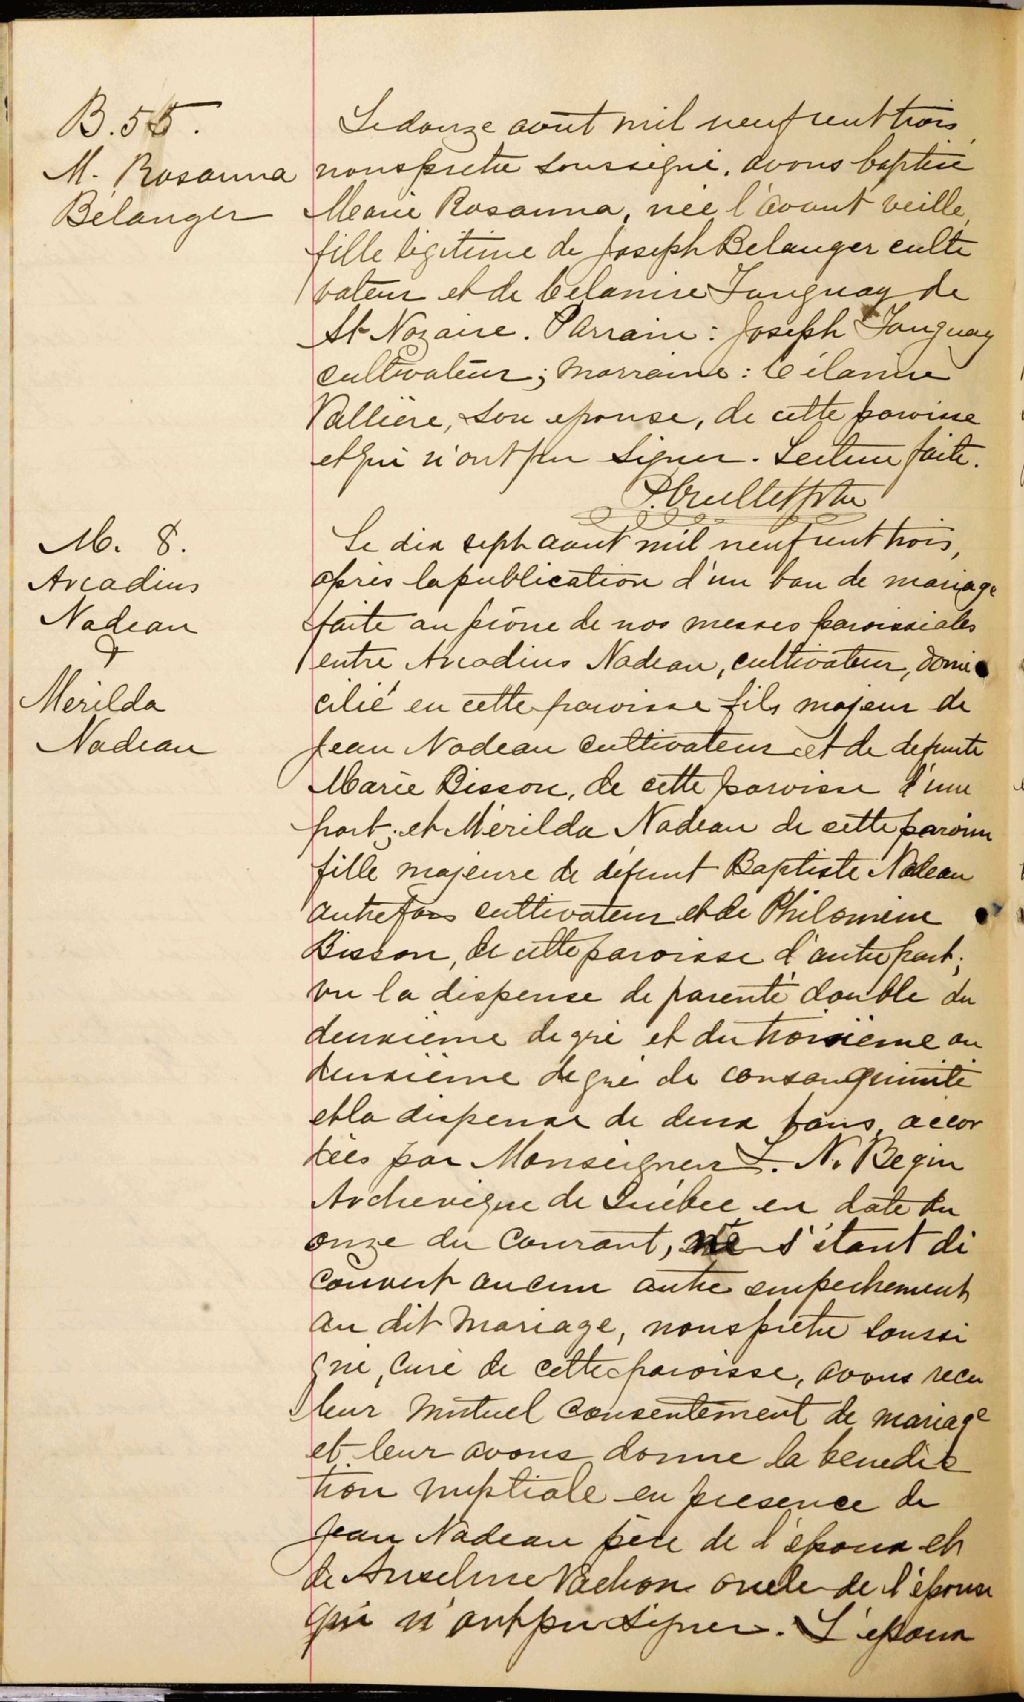 B. 55.
M. Rosanna
Bélanger
Le douze aout mil neuf cent trois,
nous prêtre soussigné, avons baptisé
Marie Rosanna, née l'avant veille,
fille légitime de Joseph Belanger culti
vateur et de Célanire Tanguay de
St Nazaire. Parrain: Joseph Tanguay
cultivateur; marraine: Célanire
Vallière, son épouse, de cette paroisse
et qui n'ont pu signer. Lecture faite.
M. 8.
Arcadius
Nadeau
&
Mérilda
Nadeau
Le dix sept aout mil neuf cent trois,
après la publication d'un ban de mariage
faite au prône de nos messes paroissiales
entre Arcadius Nadeau, cultivateur, domi
cilié en cette paroisse fils majeur de
Jean Nadeau cultivateur et de defunte
Marie Bisson, de cette paroisse d'une
part; et Mérilda Nadeau de cette paroisse
fille majeure de défunt Baptiste Nadeau
autrefois cultivateur et de Philomène
Bisson, de cette paroisse d'autre part;
vu la dispense de parenté double du
deuxième degré et du troisième au
deuxième degré de consanguinité
et la dispense de deux bans, accor
dées par Monseigneur L. N. Begin
Archevêque de Québec en date du
onze du courant, ne s'étant dé
couvert aucun autre empêchement
au dit mariage, nous prêtre soussi
gné, curé de cette paroisse, avons recu
leur mutuel consentement de mariage
et leur avons donné la bénédic
tion nuptiale en présence de
Jean Nadeau père de l'époux et
de Anselme Vachon oncle de l'épouse
qui n'ont pu signer. L'époux